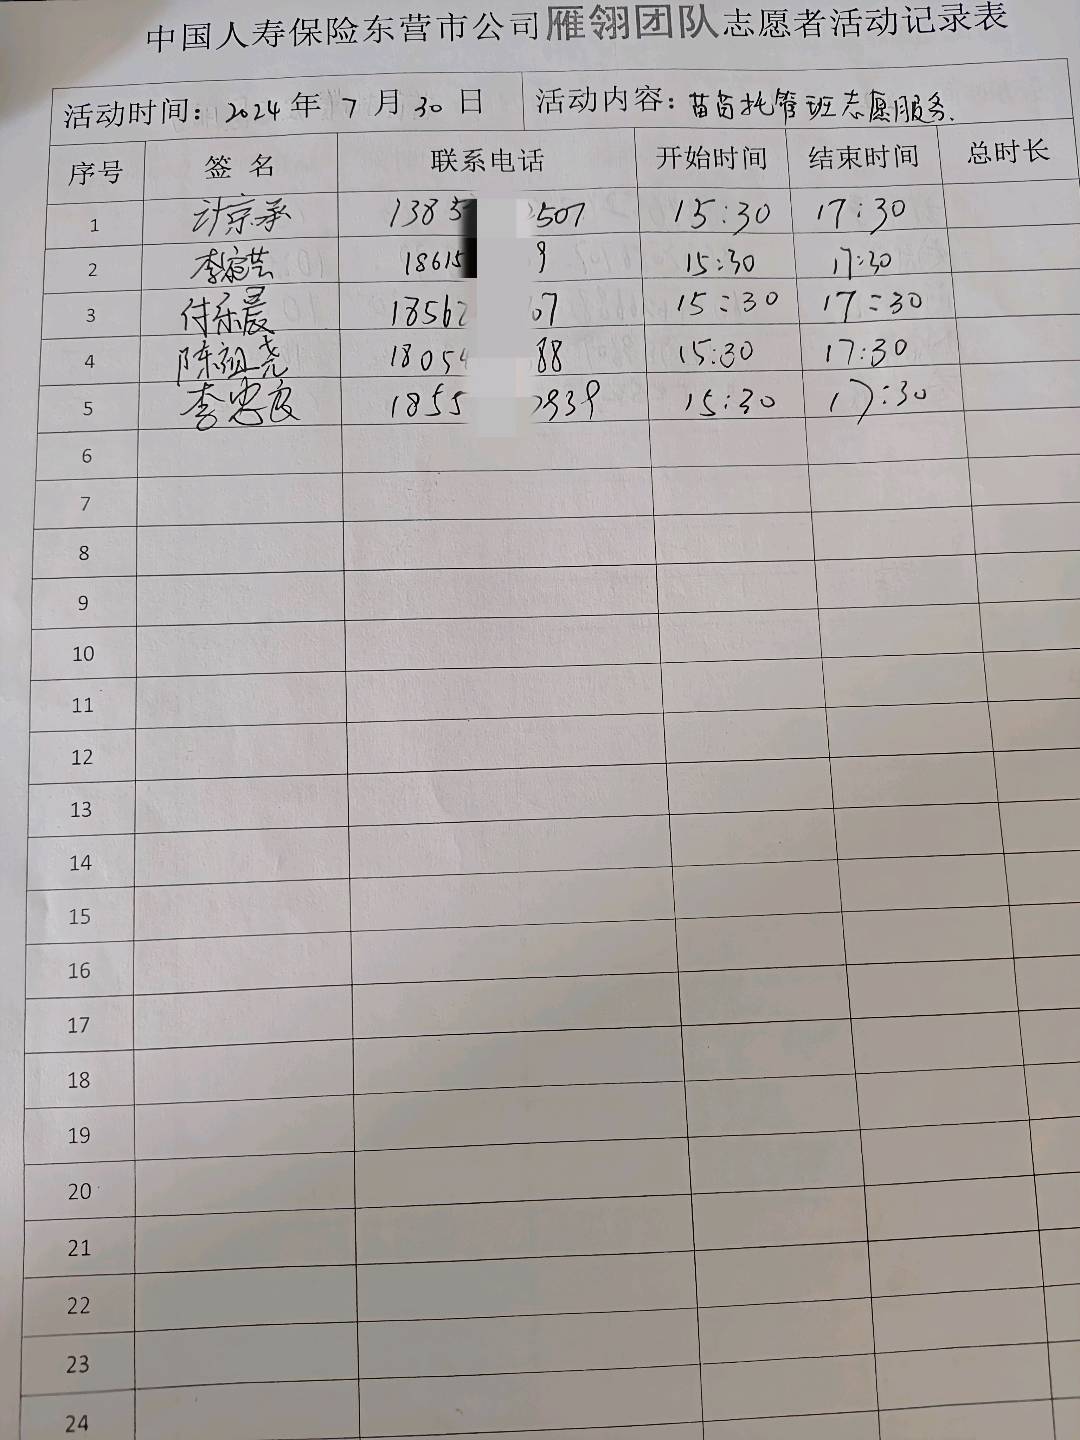 中国人寿保险东营市公司雁翎团队志愿者活动记录表
活动时间：2024年7月30日 活动内容：苗苗托管班志愿服务.
序号 签名 联系电话 开始时间 结束时间 总时长
1 许京承 1385 2507 15:30 17:30
2 李 芸 18615 9 15:30 17:30
3 付乐晨 18562 07 15:30 17:30
4 陈祖尧 18054 88 15:30 17:30
5 李忠良 1855 2939 15:30 17:30
6
7
8
9
10
11
12
13
14
15
16
17
18
19
20
21
22
23
24